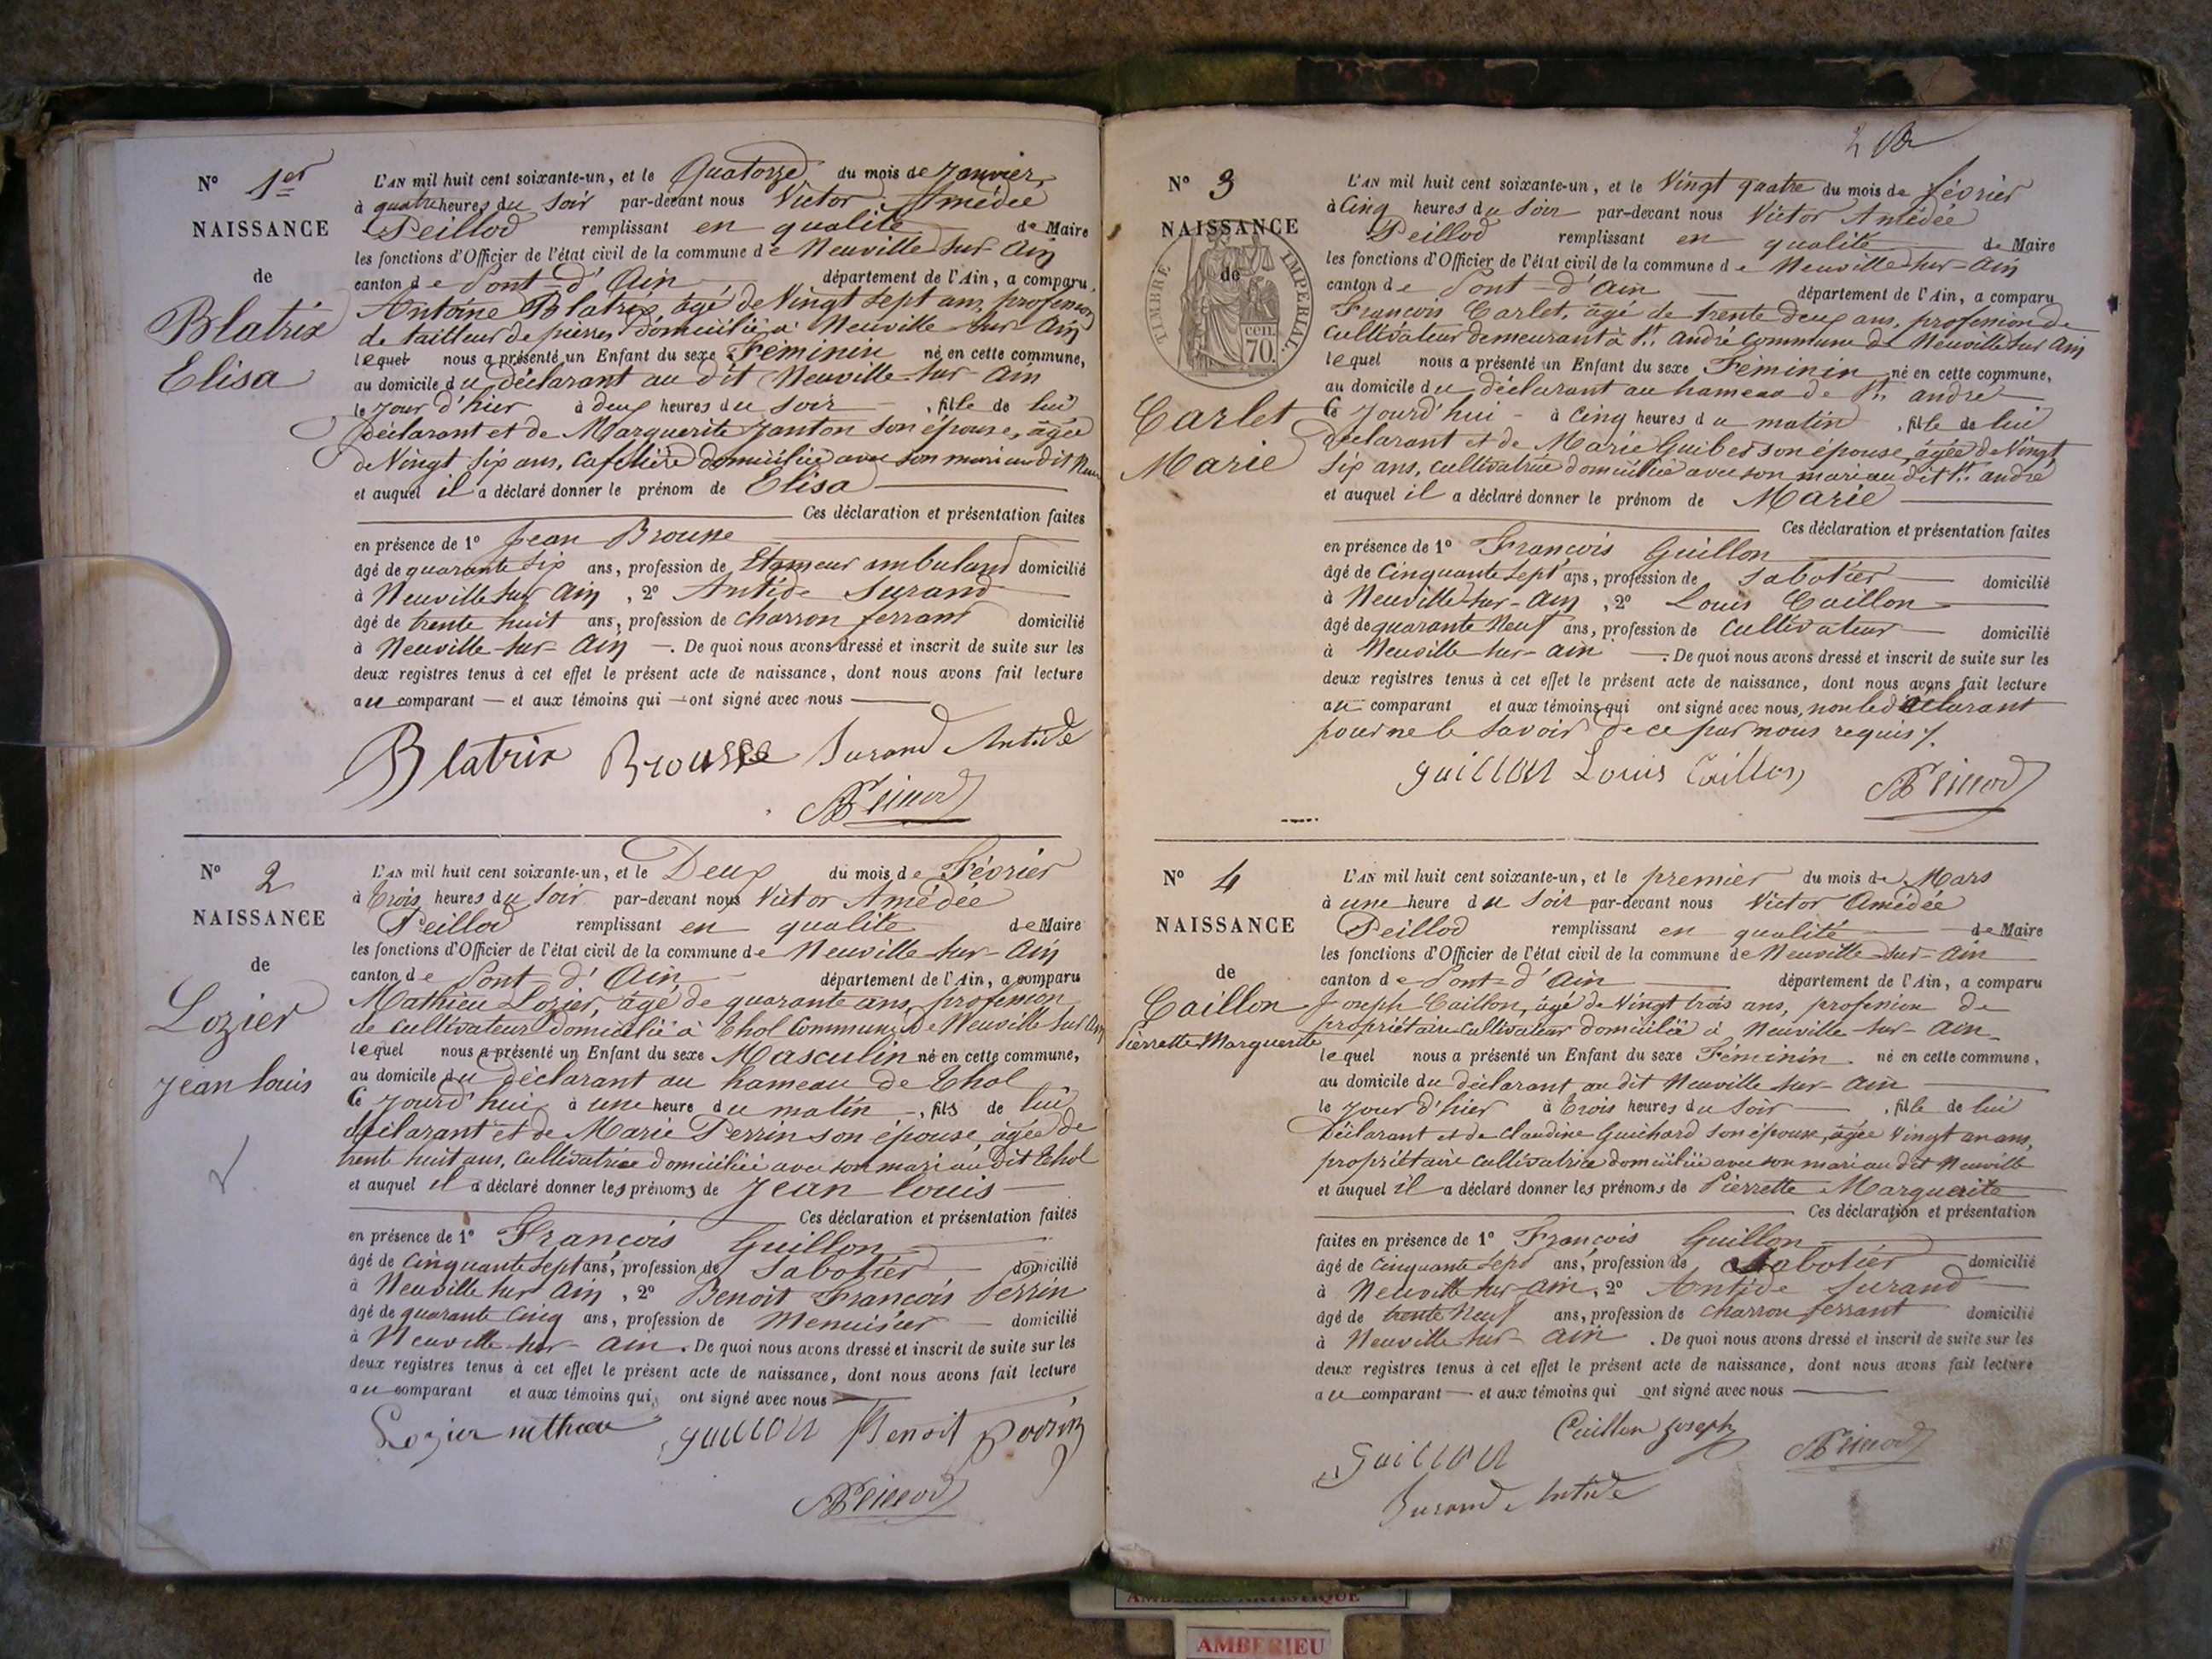 N° 1er
NAISSANCE
de
Blatrix
Elisa
L'AN mil huit cent soixante-un, et le Quatorze du mois de Janvier,
à quatre heures du soir par-devant nous Victor Amédée
Peillod remplissant en qualité de Maire
les fonctions d'Officier de l'état civil de la commune de Neuville sur Ain
canton de Pont-d'Ain département de l'Ain, a comparu
Antoine Blatrix, âgé de Vingt sept ans, profession
de tailleur de pierres domicilié à Neuville sur Ain
lequel nous a présenté un Enfant du sexe Féminin né en cette commune,
au domicile du déclarant au dit Neuville-sur-Ain
le jour d'hier à deux heures du soir, fille de lui
déclarant et de Marguerite Janton son épouse, âgée
de Vingt six ans, Cafetière domiciliée avec son mari au dit Neuv
et auquel il a déclaré donner le prénom de Elisa
Ces déclaration et présentation faites
en présence de 1° Jean Brousse
âgé de quarante six ans, profession de Etameur ambuland domicilié
à Neuville sur Ain, 2° Antide Surand
âgé de trente huit ans, profession de charron ferrant domicilié
à Neuville-sur-Ain. De quoi nous avons dressé et inscrit de suite sur les
deux registres tenus à cet effet le présent acte de naissance, dont nous avons fait lecture
au comparant et aux témoins qui ont signé avec nous
Blatrix Brousse Surand Antide
Peillod
N° 2
NAISSANCE
de
Lozier
Jean louis
L'AN mil huit cent soixante-un, et le Deux du mois de Février
à trois heures du soir par-devant nous Victor Amédée
Peillod remplissant en qualité de Maire
les fonctions d'Officier de l'état civil de la commune de Neuville-sur-Ain
canton de Pont d'Ain département de l'Ain, a comparu
Mathieu Lozier, âgé de quarante ans, profession
de cultivateur domicilié à Thol Commune de Neuville sur Ain
lequel nous a présenté un Enfant du sexe Masculin né en cette commune,
au domicile du déclarant au hameau de Thol
Ce jourd'hui à une heure du matin, fils de lui
déclarant et de Marie Perrin son épouse, âgée de
trente huit ans, Cultivatrice domiciliée avec son mari au dit Thol
et auquel il a déclaré donner les prénoms de Jean louis
Ces déclaration et présentation faites
en présence de 1° François Guillon
âgé de Cinquante sept ans, profession de Sabotier domicilié
à Neuville sur Ain, 2° Benoit François Perrin
âgé de quarante cinq ans, profession de Menuisier domicilié
à Neuville-sur-Ain. De quoi nous avons dressé et inscrit de suite sur les
deux registres tenus à cet effet le présent acte de naissance, dont nous avons fait lecture
au comparant et aux témoins qui ont signé avec nous
Lozier guillon Benoit perrin
Peillod
2
N° 3
NAISSANCE
de
TIMBRE IMPERIAL
70 cen.
Carlet
Marie
L'AN mil huit cent soixante-un, et le Vingt quatre du mois de février
à Cinq heures du soir par-devant nous Victor Amédée
Peillod remplissant en qualité de Maire
les fonctions d'Officier de l'état civil de la commune de Neuville-sur-Ain
canton de Pont-d'Ain département de l'Ain, a comparu
François Carlet, âgé de trente deux ans, profession de
Cultivateur demeurant à St. André Commune de Neuville sur Ain
lequel nous a présenté un Enfant du sexe Féminin né en cette commune,
au domicile du déclarant au hameau de St. andré
Ce jourd'hui à cinq heures du matin, fille de lui
déclarant et de Marie Guibes son épouse, âgée de Vingt
six ans, cultivatrice domiciliée avec son mari au dit St. andré
et auquel il a déclaré donner le prénom de Marie
Ces déclaration et présentation faites
en présence de 1° François Guillon
âgé de Cinquante sept ans, profession de Sabotier domicilié
à Neuville-sur-Ain, 2° Louis Caillon
âgé de quarante Neuf ans, profession de Cultivateur domicilié
à Neuville sur-ain. De quoi nous avons dressé et inscrit de suite sur les
deux registres tenus à cet effet le présent acte de naissance, dont nous avons fait lecture
au comparant et aux témoins qui ont signé avec nous, non le déclarant
pour ne le savoir de ce par nous requis /.
guillon Louis Caillon Peillod
N° 4
NAISSANCE
de
Caillon
Pierrette Marguerite
L'AN mil huit cent soixante-un, et le premier du mois de Mars
à une heure du soir par-devant nous Victor Amédée
Peillod remplissant en qualité de Maire
les fonctions d'Officier de l'état civil de la commune de Neuville-sur-Ain
canton de Pont-d'Ain département de l'Ain, a comparu
Joseph Caillon, âgé de Vingt trois ans, profession de
propriétaire Cultivateur domicilié à Neuville-sur-Ain
lequel nous a présenté un Enfant du sexe Féminin né en cette commune,
au domicile du déclarant au dit Neuville sur-Ain
le jour d'hier à trois heures du soir, fille de lui
Déclarant et de Claudine Guichard son épouse, âgée Vingt an ans,
propriétaire cultivatrice domiciliée avec son mari au dit Neuville
et auquel il a déclaré donner les prénoms de Pierrette Marguerite
Ces déclaration et présentation
faites en présence de 1° François Guillon
âgé de Cinquante sept ans, profession de Sabotier domicilié
à Neuville sur-Ain, 2° Antide Surand
âgé de trente Neuf ans, profession de charron ferrant domicilié
à Neuville sur-Ain. De quoi nous avons dressé et inscrit de suite sur les
deux registres tenus à cet effet le présent acte de naissance, dont nous avons fait lecture
au comparant et aux témoins qui ont signé avec nous
Caillon joseph
Guillon Peillod
Surand Antide
AMBERIEU